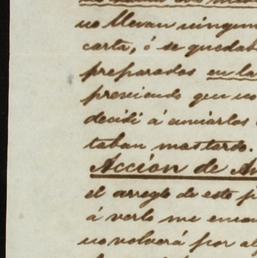 no llevan ningun
carta, ó se quedab
preparados en la
presciendo que no
decidí á enviarlos
taban mas tarde.
Acción de
el arreglo de este p
á verlo me encon
no volverá por al